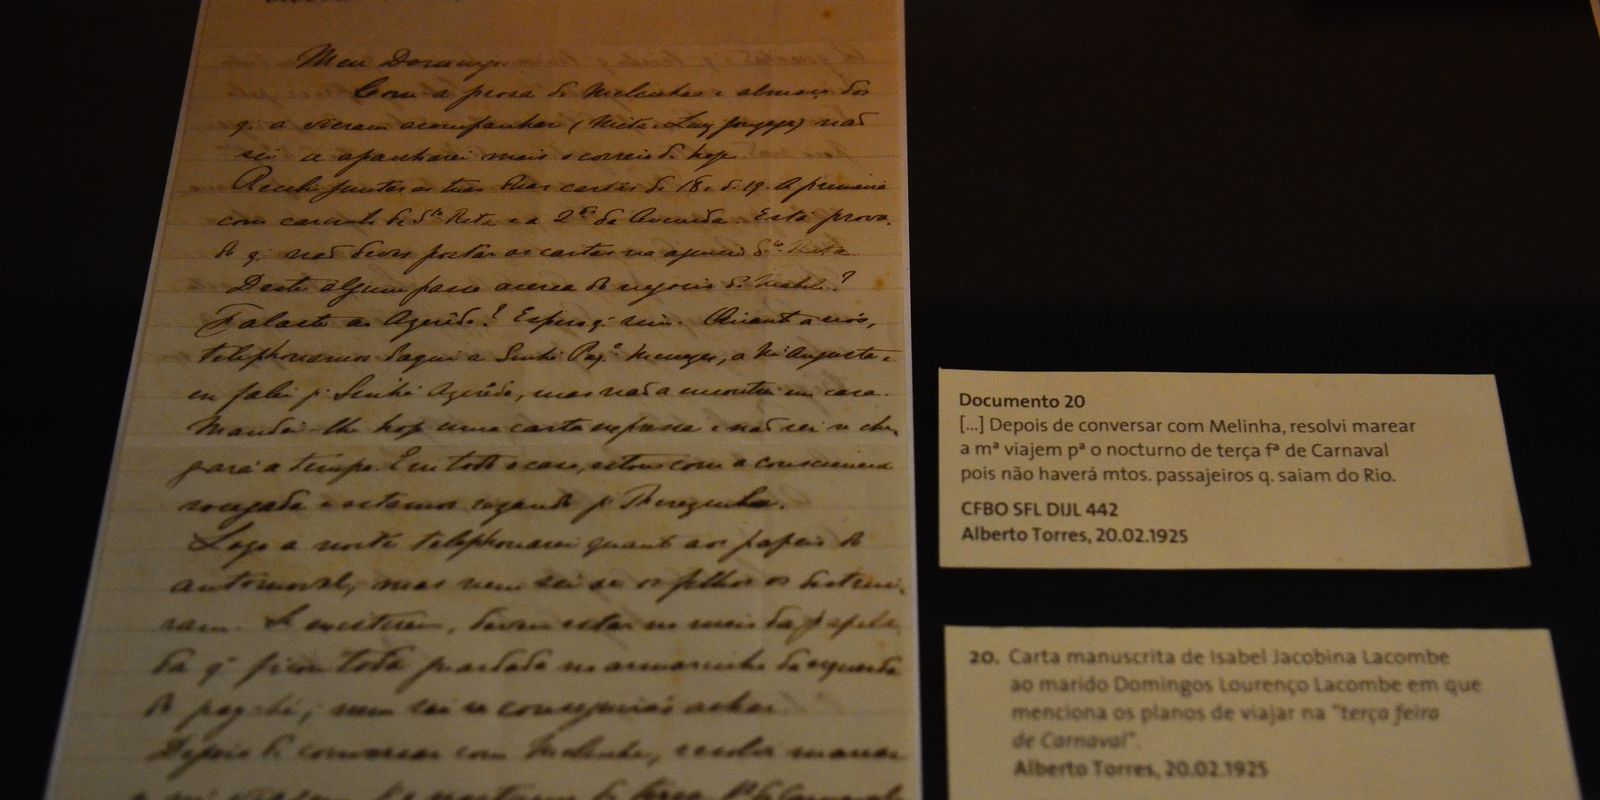 Meu Domingos
Com a prosa de Melinha e almoço dos
q. a vieram acompanhar (Nieta e Luiz Gonzaga) não
sei se apanharei mais o correio de hoje
Recebi juntas as tuas duas cartas de 18 e de 19. A primeira
com carimbo de Sta Rita e a 2da da Avenida. Está prova-
do q. não deves postar as cartas na agencia Sta Rita
Deste algum passo acerca do negocio de Mabel?
Falaste ao Azerêdo? Espero q. sim. Quanto a nós,
telephonamos daqui a Sinhá Menezes, a Augusta e
eu falei p. Sinhá Azerêdo, mas não a encontrei em casa.
Mandei-lhe hoje uma carta expressa e não sei se che-
gará a tempo. Em todo o caso, estou com a consciencia
socegada e estamos rezando p. Therezinha.
Logo a noite telephonarei quanto aos papeis do
automovel, mas nem sei se os filhos os destrui-
ram. Se existirem, devem estar no meio da papela-
da q. ficou toda guardada no armarinho da esquerda
do, nem sei se conseguirás achar.
Depois de conversar com Melinha, resolvi marear
a mª viajem pª o nocturno de terça fª de Carnaval
Documento 20
[...] Depois de conversar com Melinha, resolvi marear
a mª viajem pª o nocturno de terça fª de Carnaval
pois não haverá mtos. passajeiros q. saiam do Rio.
CFBO SFL DIJL 442
Alberto Torres, 20.02.1925
20. Carta manuscrita de Isabel Jacobina Lacombe
ao marido Domingos Lourenço Lacombe em que
menciona os planos de viajar na "terça feira
de Carnaval".
Alberto Torres, 20.02.1925